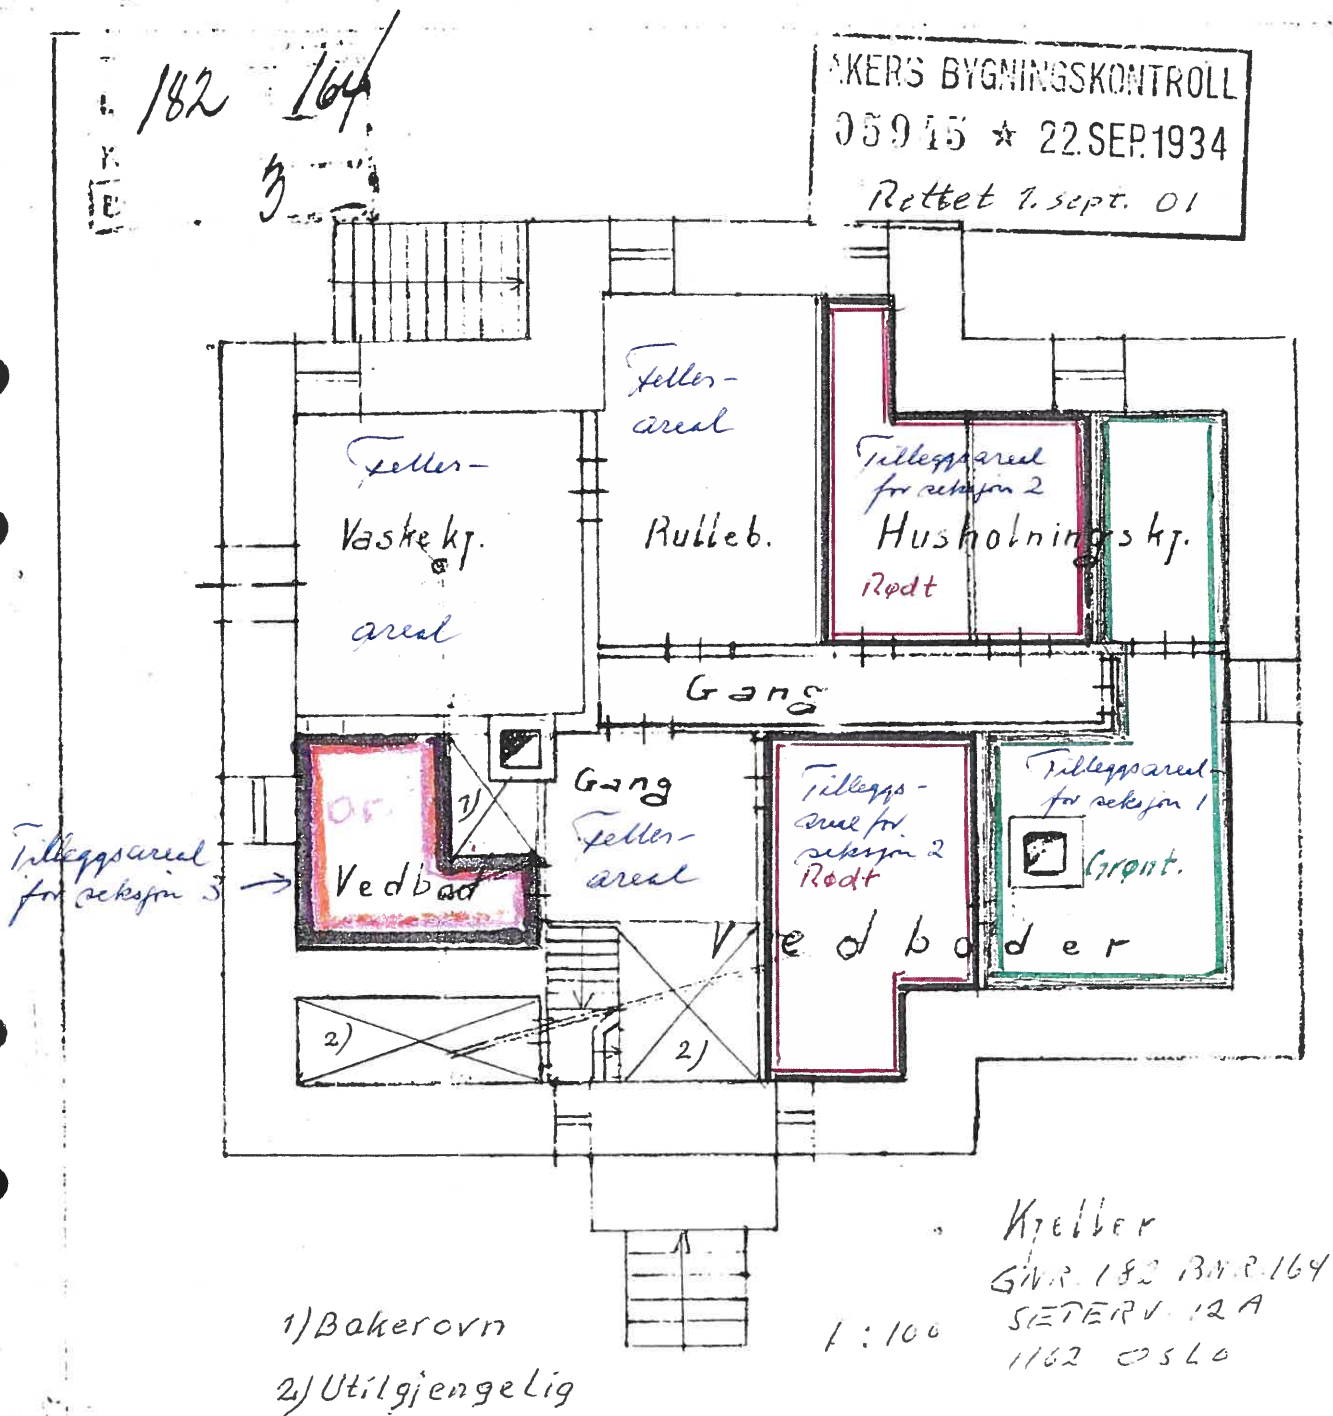 182 164
3
AKERS BYGNINGSKONTROLL
05945 ☆ 22.SEP.1934
Rettet 7. sept. 01
Felles-
areal
Rulleb.
Felles-
Vaskekj.
areal
Tilleggsareal
for seksjon 2
Husholningskj.
Rødt
Gang
Gang
Felles-
areal
Or.
Vedbod
1)
Tilleggsareal
for seksjon 3
Tilleggs-
areal for
seksjon 2
Rødt
Tilleggsareal
for seksjon 1
Grønt.
Vedboder
2)
2)
Kjeller
GNR. 182 BNR. 164
SÆTERV. 12 A
1162 OSLO
1:100
1) Bakerovn
2) Utilgjengelig